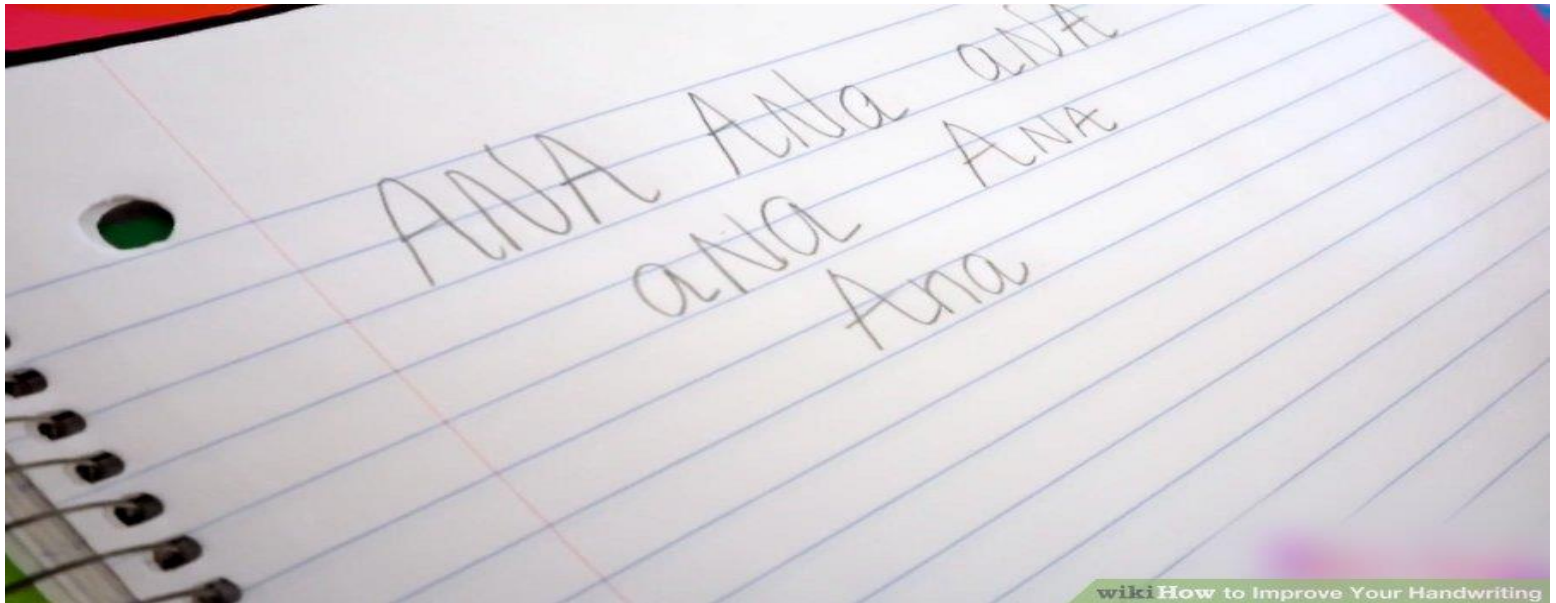 ANA ANa aNA
aNa ANA
Ana
wikiHow to Improve Your Handwriting